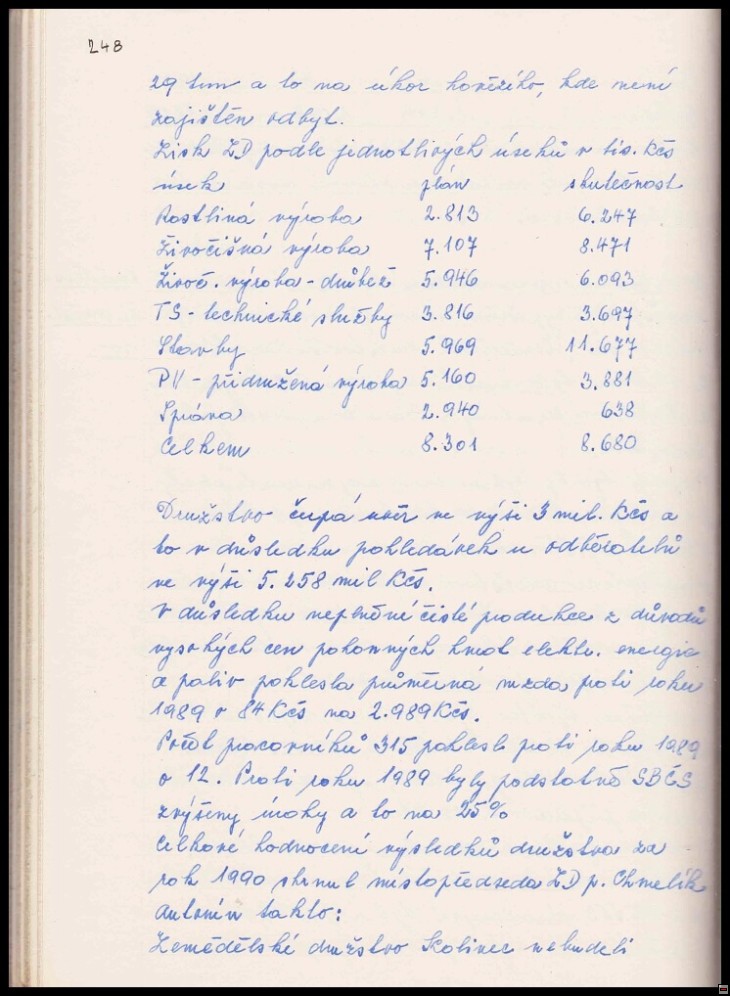 248
29 tun a to na úkor hovězího, kde není
zajištěn odbyt.
Zisk ZD podle jednotlivých úseků v tis. Kčs
úsek plán skutečnost
Rostliná výroba 2.813 6.247
Živočišná výroba 7.107 8.471
Živoč. výroba - drůbež 5.946 6.093
TS - technické služby 3.816 3.697
Stavby 5.969 11.677
PV - přidružená výroba 5.160 3.881
Správa 2.940 638
Celkem 8.301 8.680
Družstvo čerpá úvěr ve výši 3 mil. Kčs a
to v důsledku pohledávek u odběratelů
ve výši 5.258 mil Kčs.
V důsledku neplnění čisté produkce z důvodů
vysokých cen pohonných hmot elektr. energie
a paliv poklesla průměrná mzda proti roku
1989 o 84 Kčs na 2.989 Kčs.
Počet pracovníků 315 poklesl proti roku 1989
o 12. Proti roku 1989 byly podstatně SBČS
zvýšeny úroky a to na 25%
Celkové hodnocení výsledků družstva za
rok 1990 shrnul místopředseda ZD p. Chmelík
Antonín takto:
Zemědělské družstvo Kolinec nebudeli